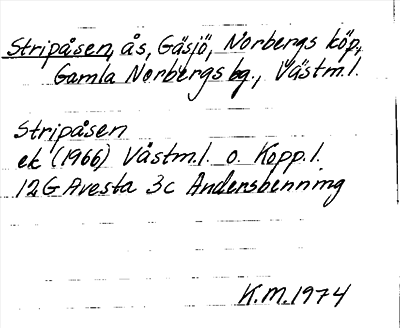 Stripåsen, ås, Gäsjö, Norbergs köp,
Gamla Norbergs bg., Västm.l.
Stripåsen
ek (1966) Våstm.l. o. Kopp.l.
12G Avesta 3c Andersbenning
K.M.1974